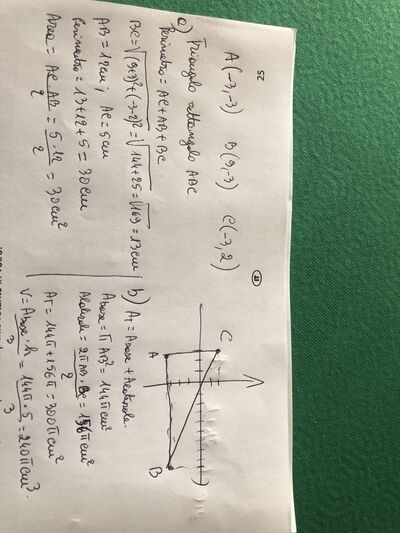 25
A(-3,-3) B(9,-3) C(-3,2)
a) Triangolo rettangolo ABC
Perimetro = AC + AB + BC
BC = √(9+3)²+(-3-2)² = √144+25 = √169 = 13 cm;
AB = 12 cm; AC = 5 cm
Perimetro = 13+12+5 = 30 cm
Area = AC · AB / 2 = 5·12 / 2 = 30 cm²
C
A
B
b) AT = Abase + Alaterale
Abase = π AB² = 144π cm²
Alaterale = 2π AB · BC / 2 = 156π cm²
AT = 144π + 156π = 300π cm²
V = Abase · h / 3 = 144π · 5 / 3 = 240π cm³.